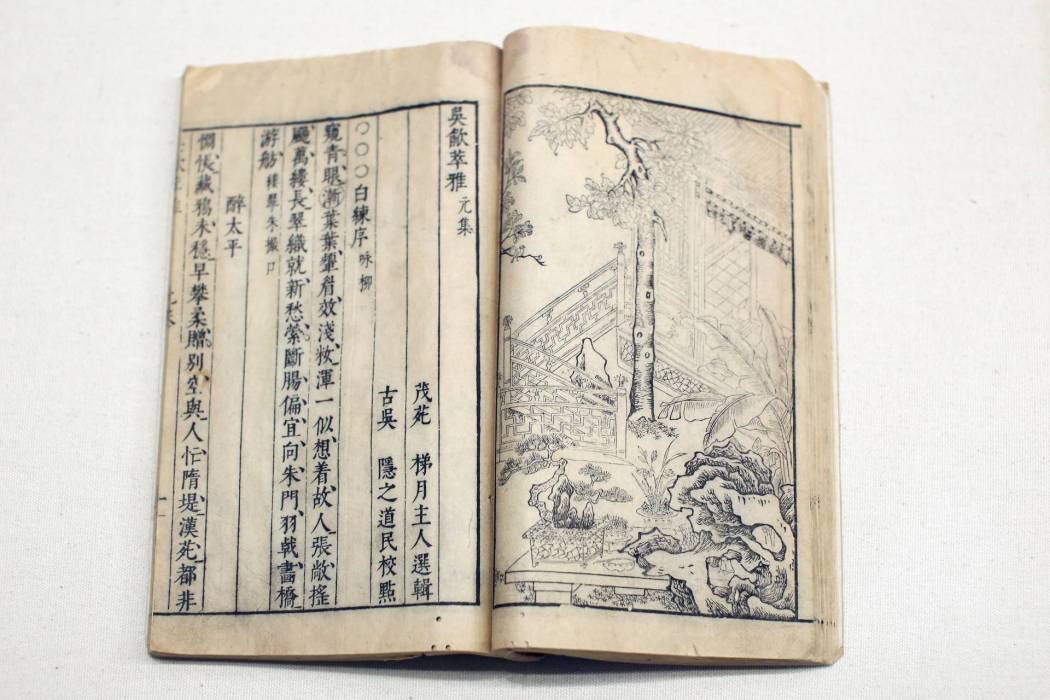 吳歈萃雅 元集
茂苑 梯月主人選輯
古吳 隱之道民校點
○○○白練序 咏柳
窺青眼、漸葉葉顰眉效淺妝、渾一似、想着故人張敞、搖
颺、萬縷長、翠織就新愁縈斷腸、偏宜向、朱門羽戟、畵橋
游舫
醉太平
惆悵、藏鴉未穩、早攀柔贈別、空與人忙、隋堤漢苑、都非